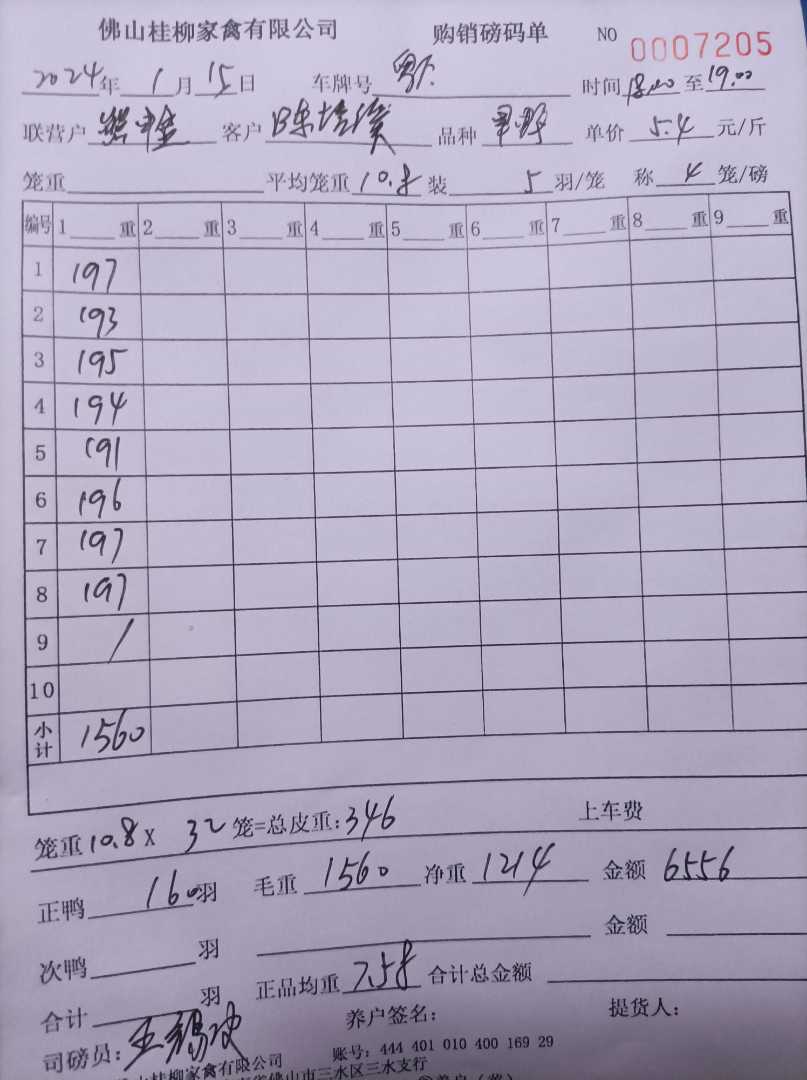 佛山桂柳家禽有限公司 购销磅码单 NO 0007205
2024年 1月 15日 车牌号 时间 至 19.00
联营户 客户 陈培 品种 单价 5.4 元/斤
笼重 平均笼重 10.8 装 5 羽/笼 称 4 笼/磅
编号 1 重 2 重 3 重 4 重 5 重 6 重 7 重 8 重 9 重
1 197
2 193
3 195
4 194
5 191
6 196
7 197
8 197
9 /
10
小计 1560
笼重 10.8 X 32 笼=总皮重: 346 上车费
正鸭 160 羽 毛重 1560 净重 1214 金额 6556
次鸭 羽 金额
合计 羽 正品均重 7.58 合计总金额
司磅员: 王锡 养户签名: 提货人:
山桂柳家禽有限公司 账号: 444 401 010 400 169 29
佛山市三水区三水支行